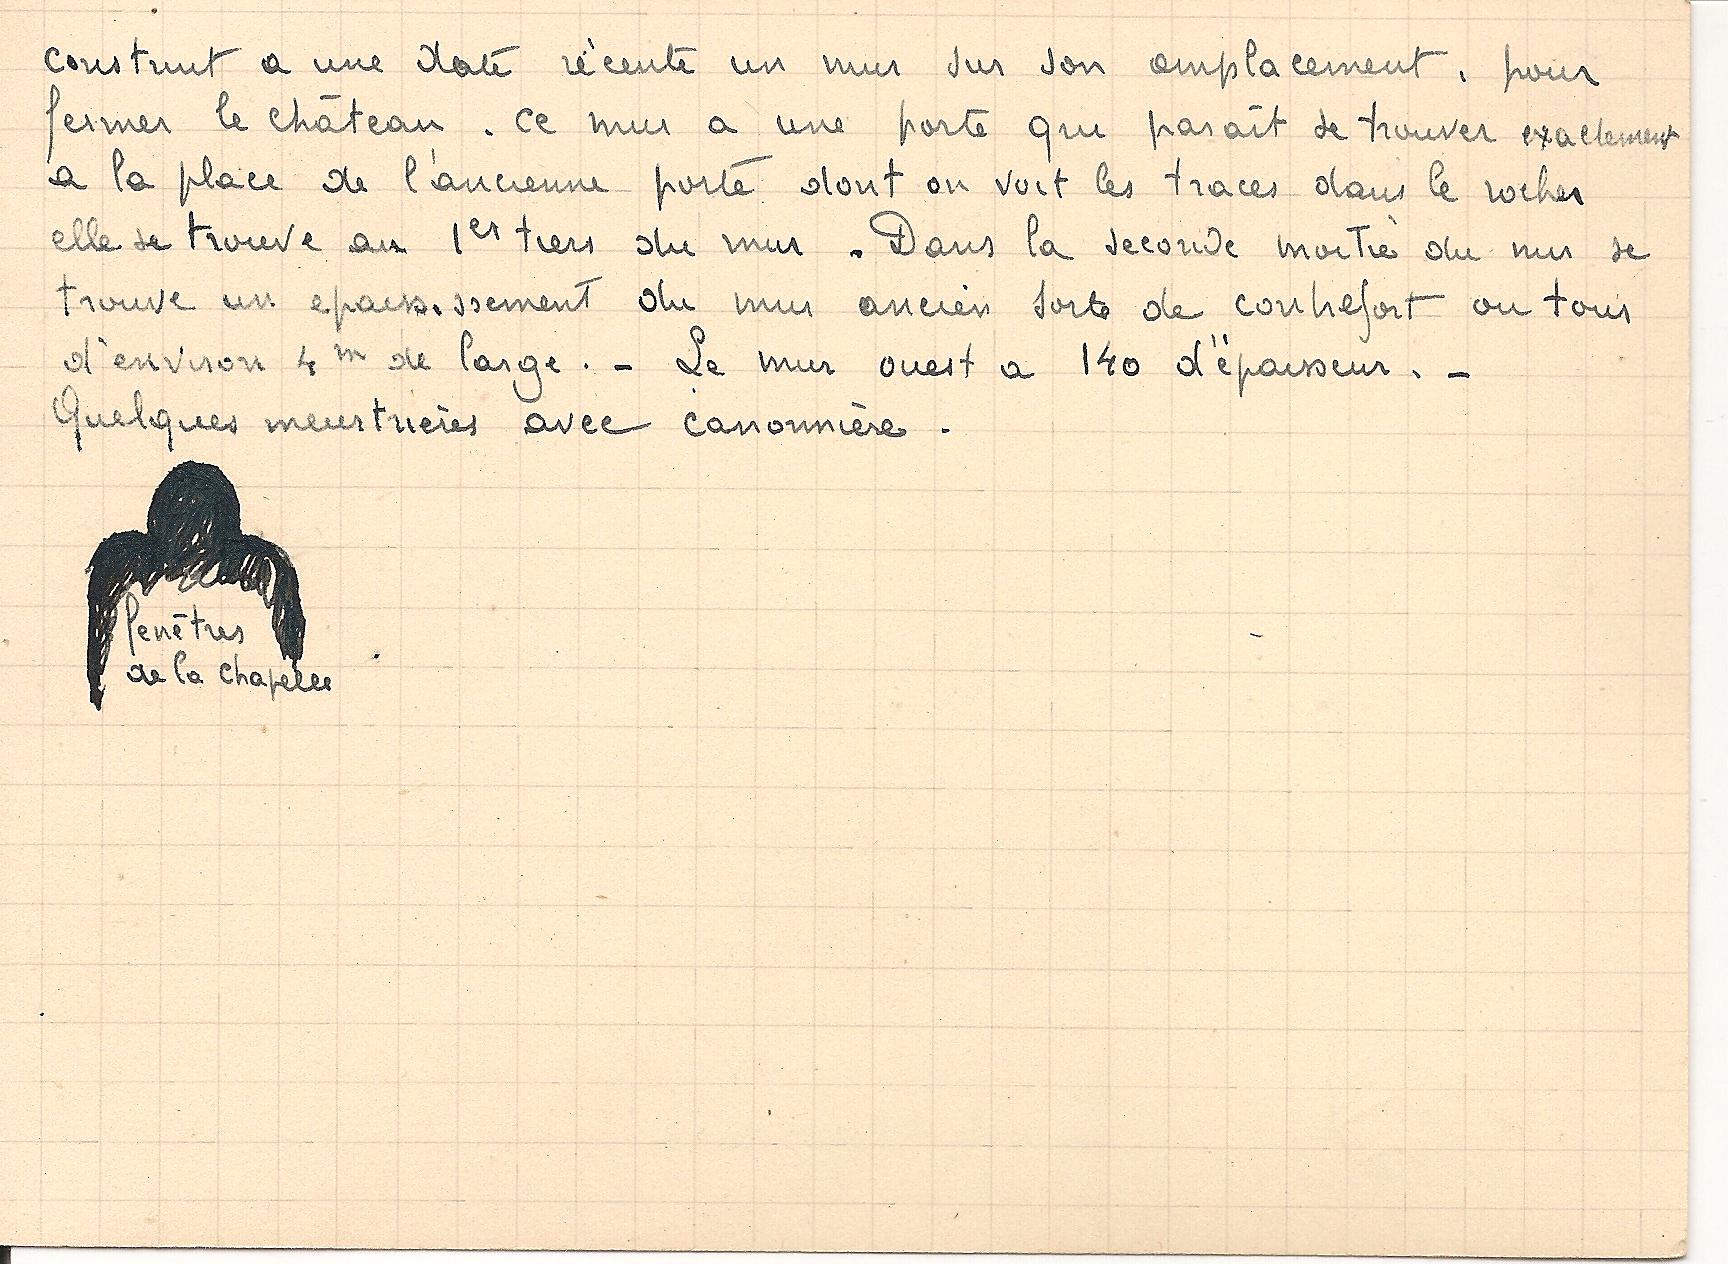 construit a une date récente un mur sur son emplacement, pour
fermer le château. ce mur a une porte qui paraît se trouver exactement
a la place de l'ancienne porte dont on voit les traces dans le rocher
elle se trouve au 1er tiers du mur. Dans la seconde moitié du mur se
trouve un epaississement du mur ancien sorte de contrefort ou tour
d'environ 4m de large. - Le mur ouest a 140 d'épaisseur. -
Quelques meurtrières avec canonnière.
fenêtres
de la chapelle